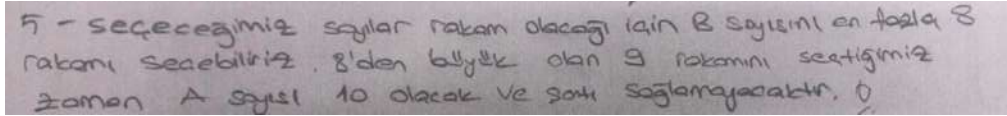 5 - seçeceğimiz sayılar rakam olacağı için B sayısını en fazla 8
rakamı seçebiliriz. 8'den büyük olan 9 rakamını seçtiğimiz
zaman A sayısı 10 olacak ve şartı sağlamayacaktır. O